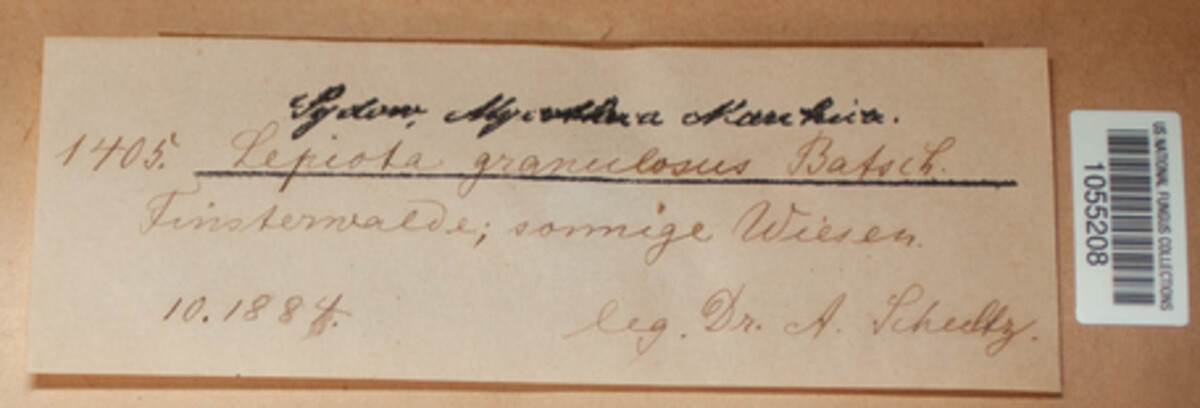 Sydow, Mycotheca Marchica.
1405. Lepiota granulosus Batsch.
Finsterwalde; sonnige Wiesen.
10.1884.
leg. Dr. A. Schultz.
US NATIONAL FUNGUS COLLECTIONS
1055208